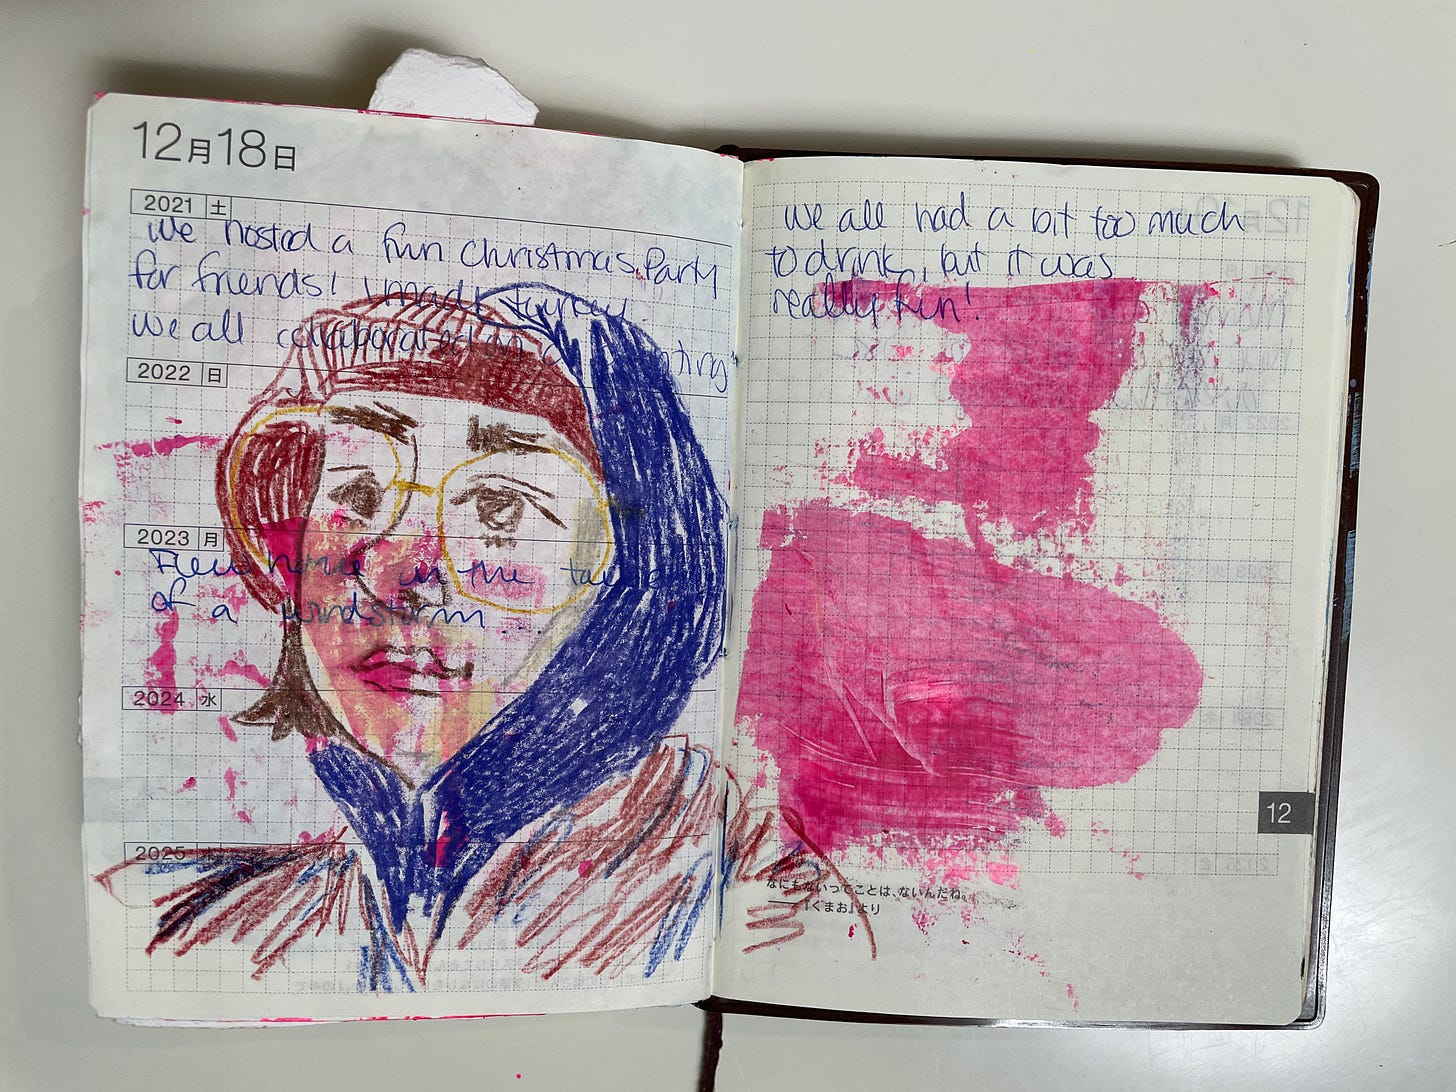 12月18日
2021 土
We hosted a fun Christmas Party
for friends! I made turkey.
We all collaborated on a painting
2022 日
2023 月
Flew home in the tail end
of a windstorm...
2024 水
2025 木
we all had a bit too much
to drink, but it was
really fun!
12
なにもないってことは、ないんだね。
──『くまお』より